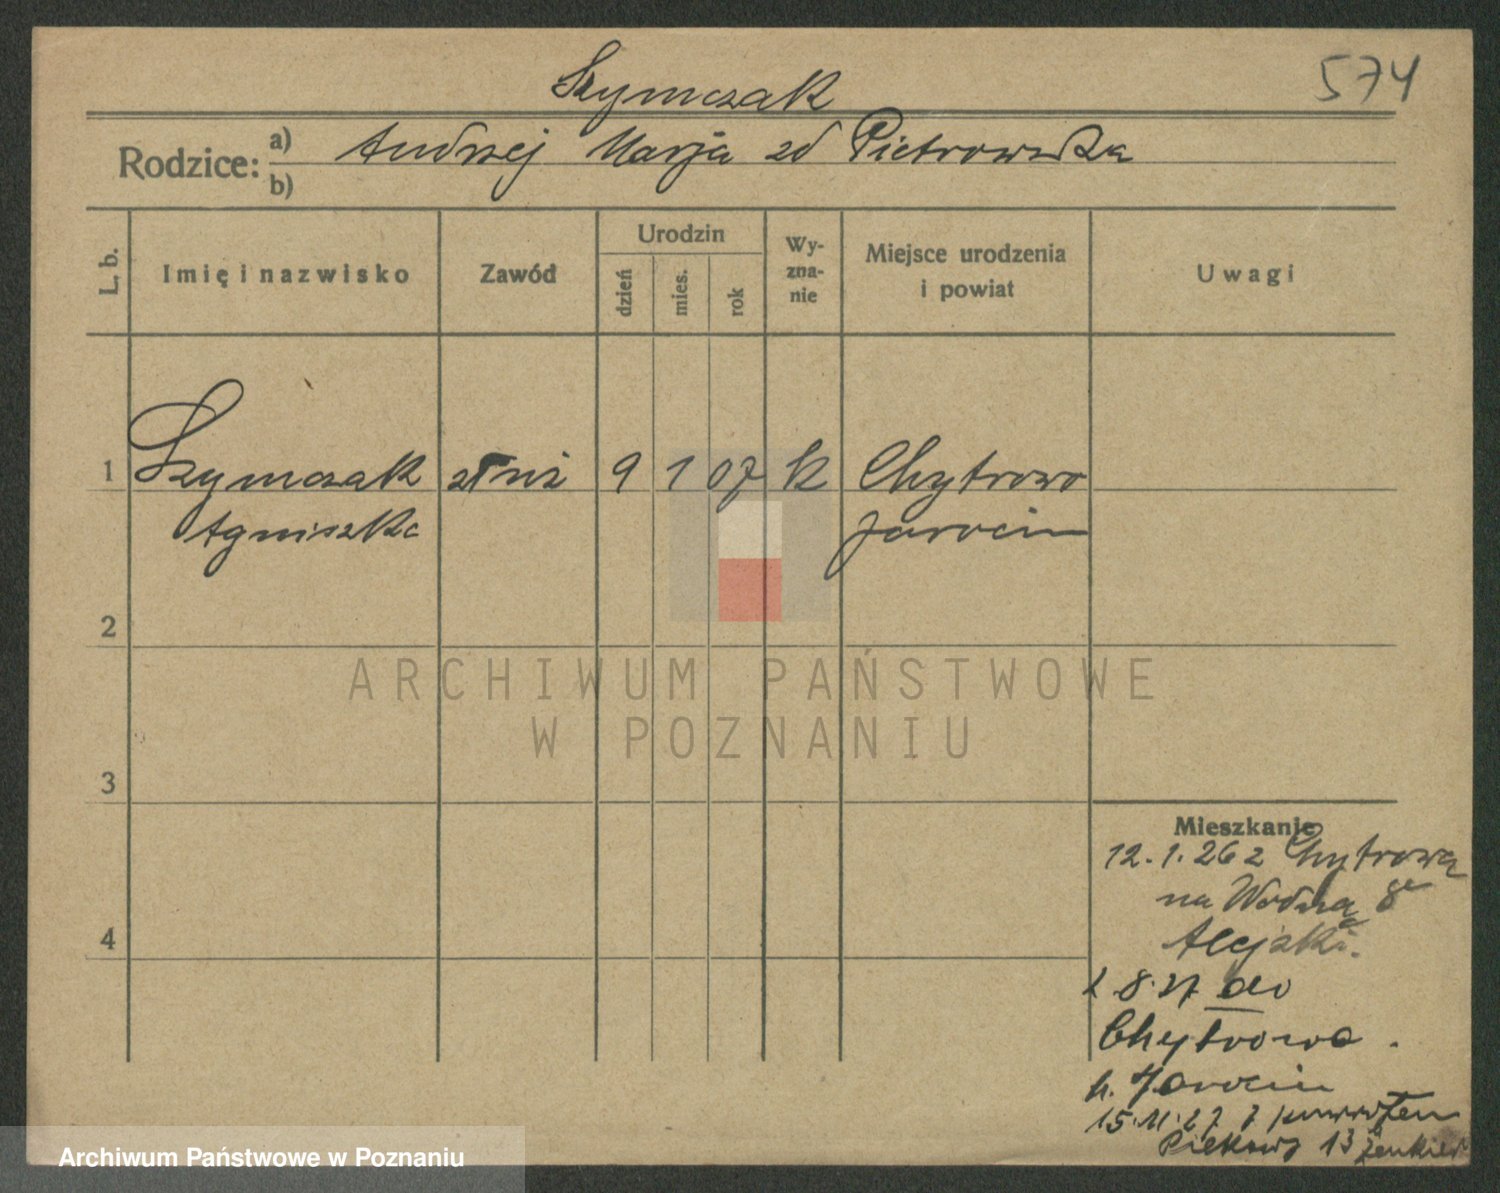 Szymczak
574
Rodzice: a) Andrzej Marja zd Pietrowska
b)
L. b. Imię i nazwisko Zawód Urodzin dzień mies. rok Wy-zna-nie Miejsce urodzenia i powiat Uwagi
1 Szymczak 9 1 07 k Chytrowo
Agniszka Jarocin
2
3
4
Mieszkanie
12.1.26 z Chytrowa
na Wodną 8
Alejski.
2.8.27 do
Chytrowo.
p. Jarocin
15.11.27 z powrotem
Piekary 13
ARCHIWUM PAŃSTWOWE
W POZNANIU
Archiwum Państwowe w Poznaniu